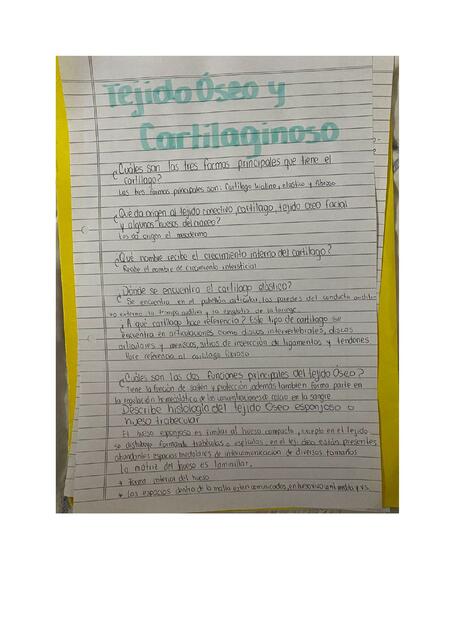 Tejido Óseo y
Cartilaginoso
¿Cuáles son las tres formas principales que tiene el
cartílago?
Las tres formas principales son: Cartílago hialino, elastico y fibroso
¿Que da origen al tejido conectivo, cartílago, tejido óseo facial
y algunos huesos del craneo?
Les da origen el mesodermo
¿Qué nombre recibe el crecimiento interno del cartílago?
Recibe el nombre de crecimiento intersticial
¿Dónde se encuentra el cartílago elástico?
Se encuentra en el pabellón articular, las paredes del conducto auditi-
vo externo, la trompa auditiva y la epiglotis de la laringe
¿A qué cartílago hace referencia? Este tipo de cartílago se
encuentra en articulaciones como discos intervertebrales, discos
articulares y meniscos, sitios de inserción de ligamentos y tendones
Hace referencia al cartílago fibroso
¿Cuáles son las dos funciones principales del tejido Óseo?
Tiene la función de sostén y protección además tambien forma parte en
la regulación homeostática de las concentraciones de calcio en la sangre
Describe histología del tejido Óseo esponjoso o
hueso trabecular
El hueso esponjoso es similar al hueso compacto, excepto en el tejido
se distribuye formando trabéculas o espículas, en el les óseo están presentes
abundantes espacios medulares de intercomunicacion de diversos tamaños
La matriz del hueso es laminillar.
* forma interior del hueso
* Los espacios dentro de la malla estan comunicados, en hueso vivo